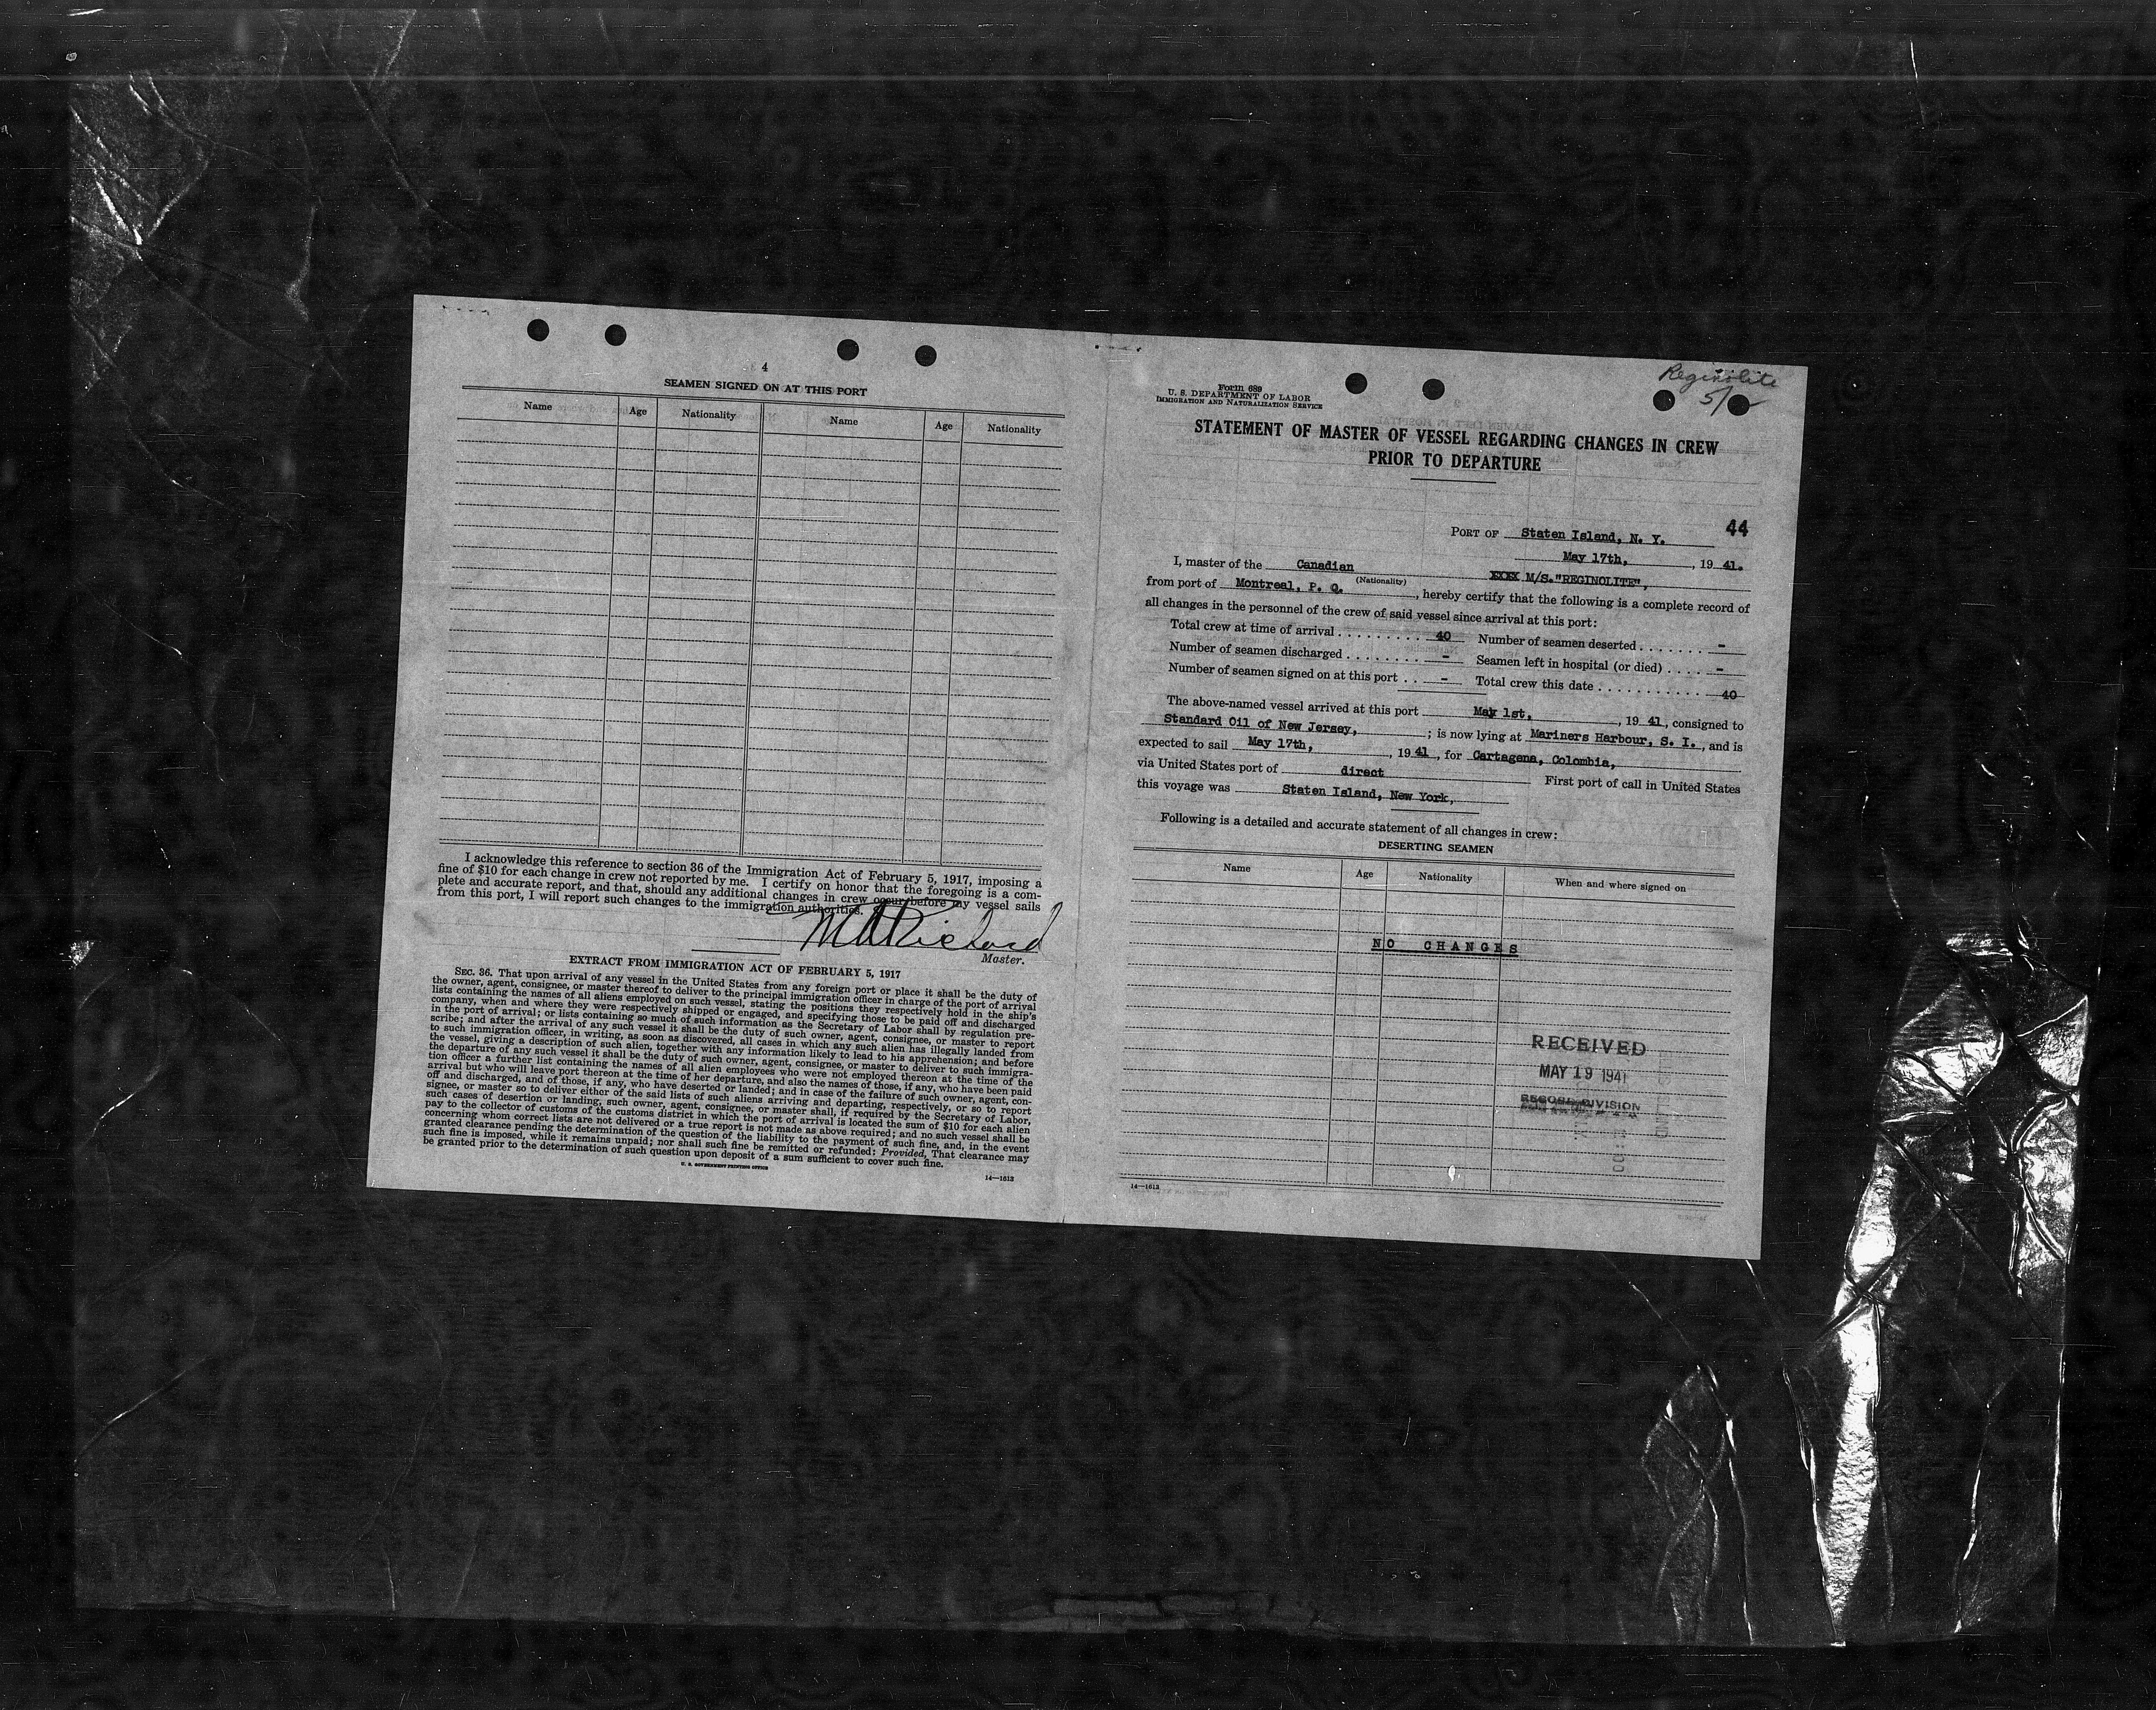 4
SEAMEN SIGNED ON AT THIS PORT
Name Age Nationality Name Age Nationality
I acknowledge this reference to section 36 of the Immigration Act of February 5, 1917, imposing a
fine of $10 for each change in crew not reported by me. I certify on honor that the foregoing is a com-
plete and accurate report, and that, should any additional changes in crew occur before my vessel sails
from this port, I will report such changes to the immigration authorities.
Master.
EXTRACT FROM IMMIGRATION ACT OF FEBRUARY 5, 1917
SEC. 36. That upon arrival of any vessel in the United States from any foreign port or place it shall be the duty of
the owner, agent, consignee, or master thereof to deliver to the principal immigration officer in charge of the port of arrival
lists containing the names of all aliens employed on such vessel, stating the positions they respectively hold in the ship's
company, when and where they were respectively shipped or engaged, and specifying those to be paid off and discharged
in the port of arrival; or lists containing so much of such information as the Secretary of Labor shall by regulation pre-
scribe; and after the arrival of any such vessel it shall be the duty of such owner, agent, consignee, or master to report
to such immigration officer, in writing, as soon as discovered, all cases in which any such alien has illegally landed from
the vessel, giving a description of such alien, together with any information likely to lead to his apprehension; and before
the departure of any such vessel it shall be the duty of such owner, agent, consignee, or master to deliver to such immigra-
tion officer a further list containing the names of all alien employees who were not employed thereon at the time of the
arrival but who will leave port thereon at the time of her departure, and also the names of those, if any, who have been paid
off and discharged, and of those, if any, who have deserted or landed; and in case of the failure of such owner, agent, con-
signee, or master so to deliver either of the said lists of such aliens arriving and departing, respectively, or so to report
such cases of desertion or landing, such owner, agent, consignee, or master shall, if required by the Secretary of Labor,
pay to the collector of customs of the customs district in which the port of arrival is located the sum of $10 for each alien
concerning whom correct lists are not delivered or a true report is not made as above required; and no such vessel shall be
granted clearance pending the determination of the question of the liability to the payment of such fine, and, in the event
such fine is imposed, while it remains unpaid; nor shall such fine be remitted or refunded: Provided, That clearance may
be granted prior to the determination of such question upon deposit of a sum sufficient to cover such fine.
U. S. GOVERNMENT PRINTING OFFICE
14—1613
Reginolite
Form 689
U. S. DEPARTMENT OF LABOR
IMMIGRATION AND NATURALIZATION SERVICE
STATEMENT OF MASTER OF VESSEL REGARDING CHANGES IN CREW
PRIOR TO DEPARTURE
44
PORT OF Staten Island, N. Y.
May 17th, , 19 41.
I, master of the Canadian XXXX M/S."REGINOLITE",
(Nationality)
from port of Montreal, P. Q. , hereby certify that the following is a complete record of
all changes in the personnel of the crew of said vessel since arrival at this port:
Total crew at time of arrival . . . . . . . . . 40 Number of seamen deserted . . . . . . . -
Number of seamen discharged . . . . . . . . - Seamen left in hospital (or died) . . . . -
Number of seamen signed on at this port . . - Total crew this date . . . . . . . . . . . 40
The above-named vessel arrived at this port May 1st, , 19 41, consigned to
Standard Oil of New Jersey, ; is now lying at Mariners Harbour, S. I., and is
expected to sail May 17th, , 19 41, for Cartagena, Colombia,
via United States port of direct First port of call in United States
this voyage was Staten Island, New York,
Following is a detailed and accurate statement of all changes in crew:
DESERTING SEAMEN
Name Age Nationality When and where signed on
NO CHANGES
RECEIVED
MAY 19 1941
RECORD DIVISION
14—1613